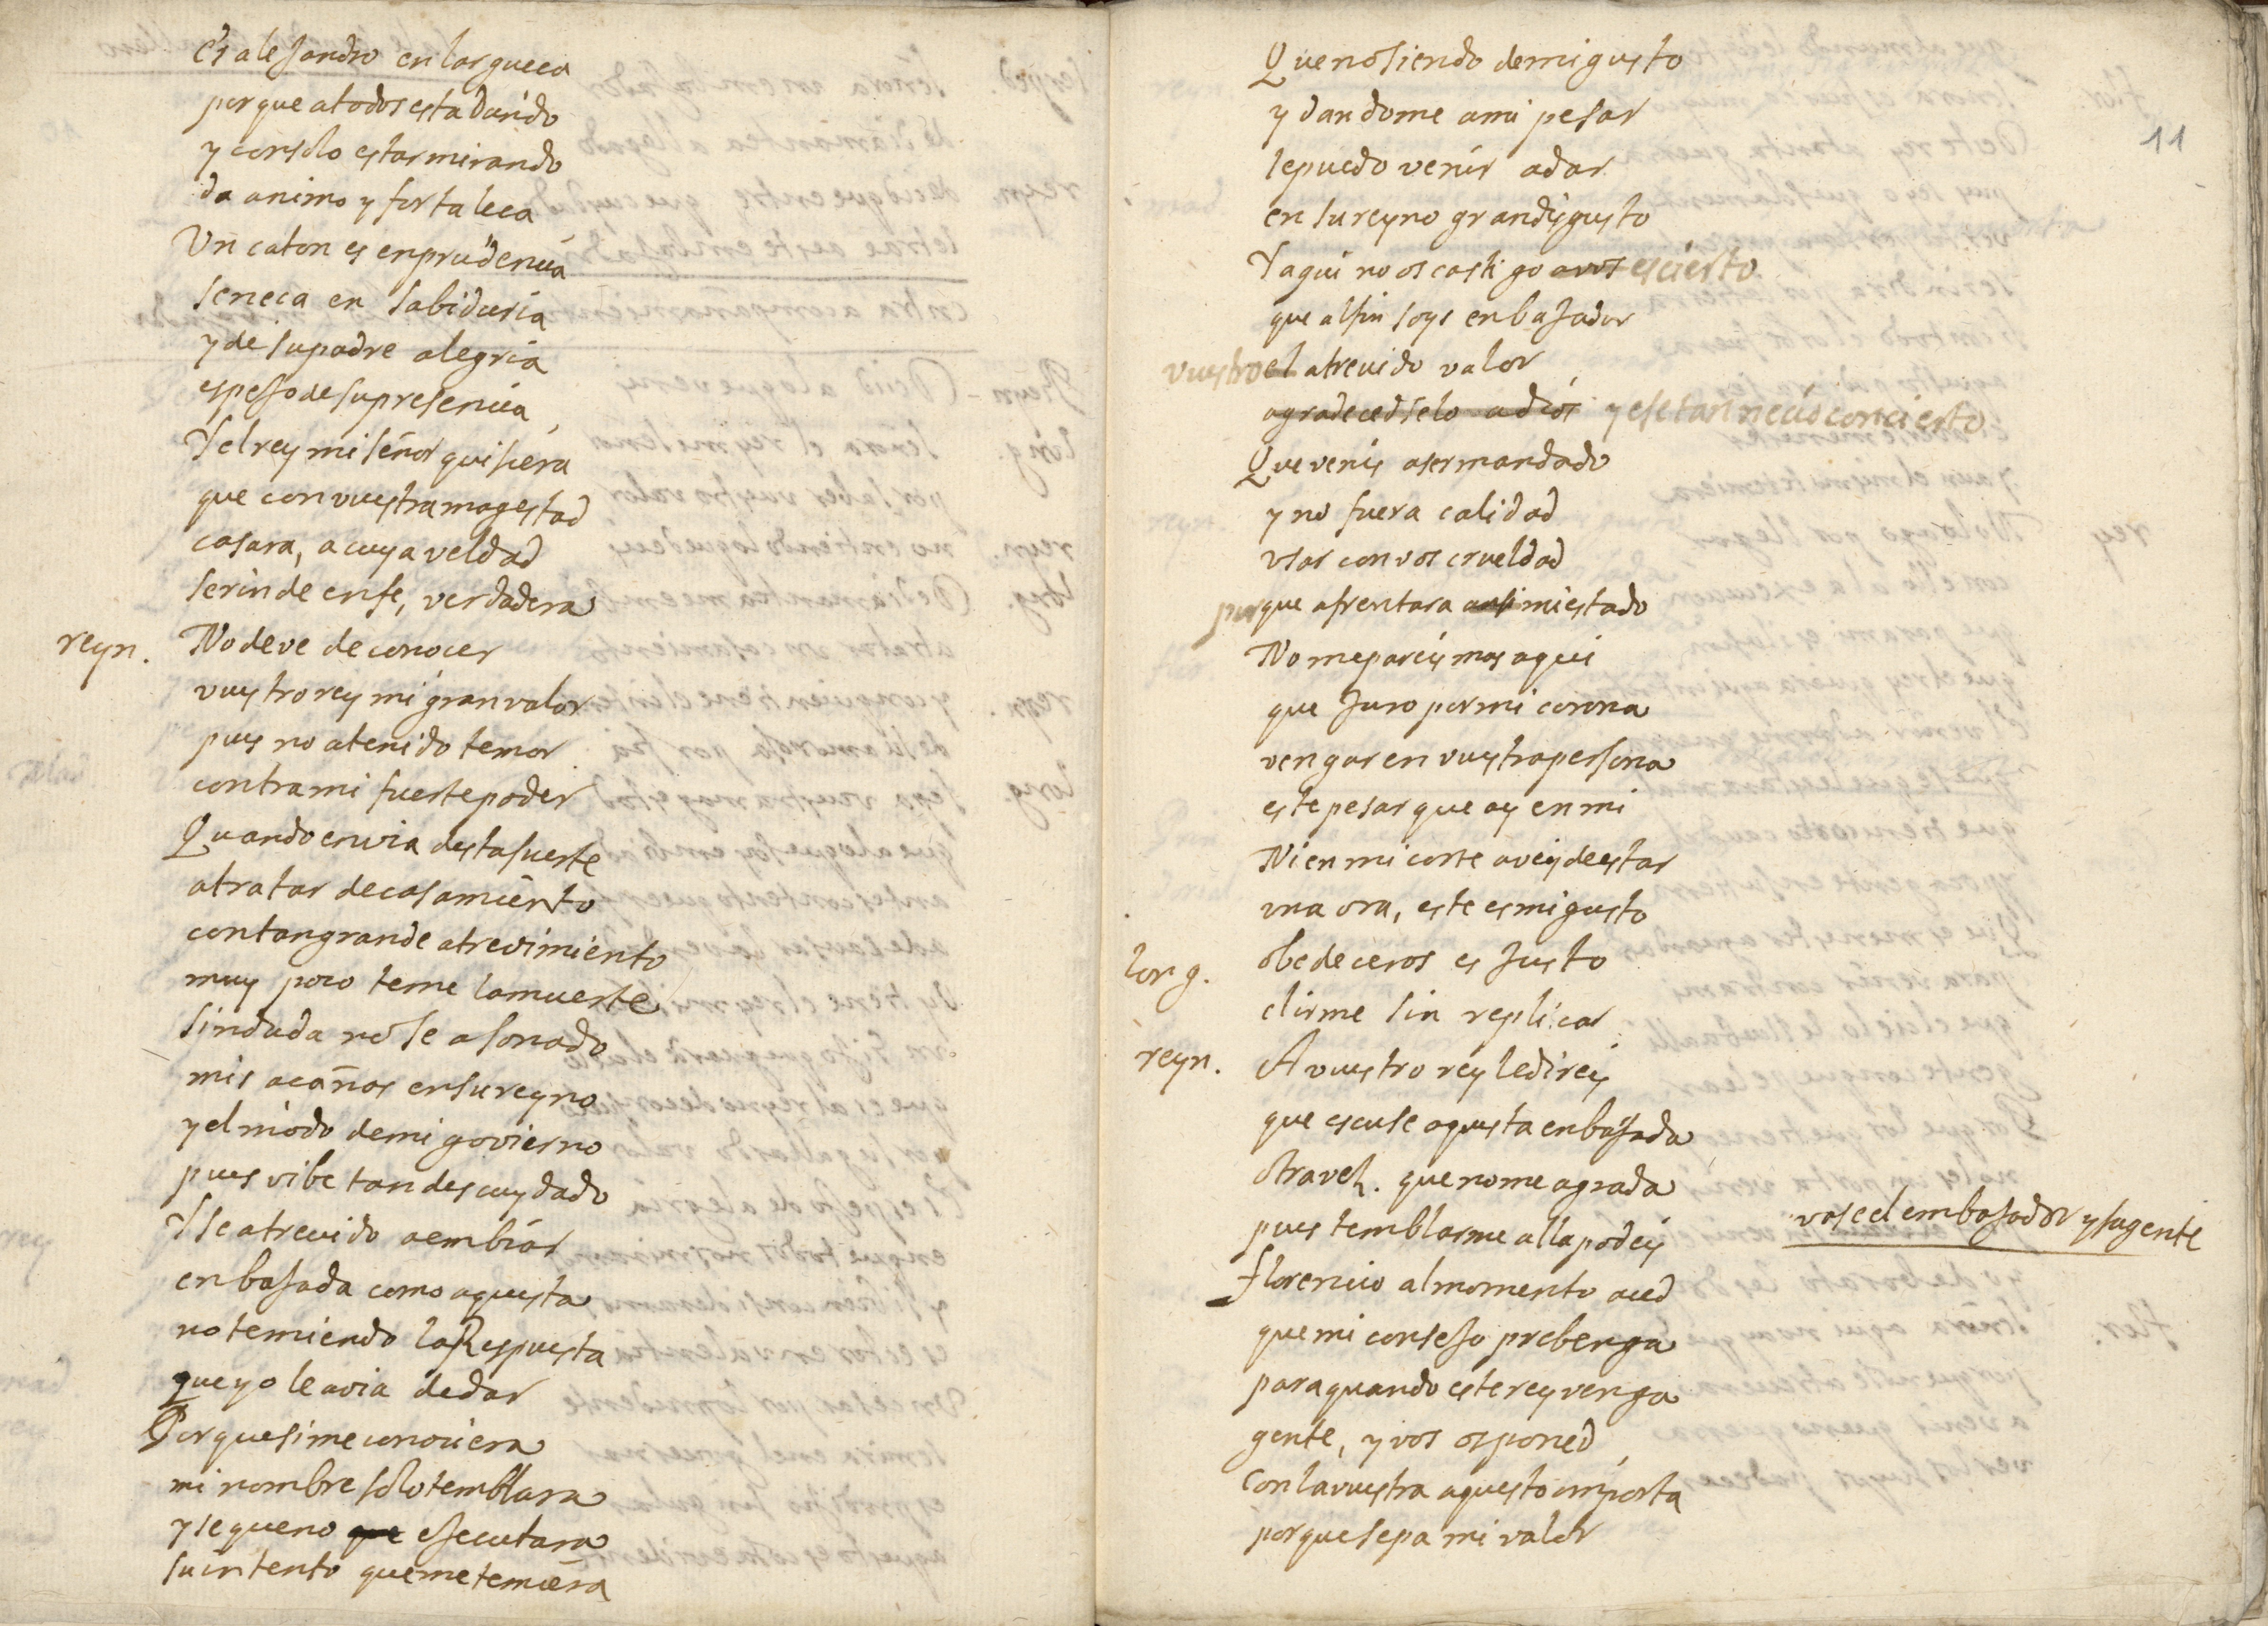 es alejandro en largueça
porque a todos esta dando
y con solo estar mirando
da animo y fortaleça
Un caton es en prudencia
seneca en sabiduria
y de su padre alegria
espejo de su presencia
Y el rey mi señor quisiera
que con vuestra magestad
casara, a cuya veldad
se rinde en fe, verdadera
reyn. No deve de conocer
vuestro rey mi gran valor
pues no a tenido temor
contra mi fuerte poder
Quando envia desta suerte
a tratar de casamiento
con tan grande atrevimiento
muy poco teme la muerte
sin duda no se a sonado
mis açañas en su reyno
y el modo de mi govierno
pues vibe tan descuydado
Y se atrevido a embiar
enbajada como aquesta
no temiendo la Respuesta
que yo le avia de dar
Porque si me conociera
mi nombre solo temblara
y se que no que esecutara
su intento que me temiera
11
Que no siendo de mi gusto
y dandome a mi pesar
le puedo venir a dar
en su reyno gran disgusto
Y aqui no os castigo a vos es cierto
que al fin soys enbajador
vuestro el atrevido valor
agradecedselo a dios y ese tan necio concierto
Que venis a ser mandado
y no fuera calidad
usar con vos crueldad
porque afrentara ansi mi estado
No me pareis mas aqui
que Juro por mi corona
vengar en vuestra persona
este pesar que ay en mi
Ni en mi corte aveis de estar
una ora, este es mi gusto
long. obedeceros es Justo
el irme sin replicar
reyn. A vuestro rey le direis
que escuse aquesta enbajada
otra vez. que no me agrada
pues temblarme alla podeis
vase el embajador y su gente
florencio al momento aced
que mi consejo prebenga
para quando este rey venga
gente, y vos os poned
con la vuestra aquesto importa
porque sepa mi valor